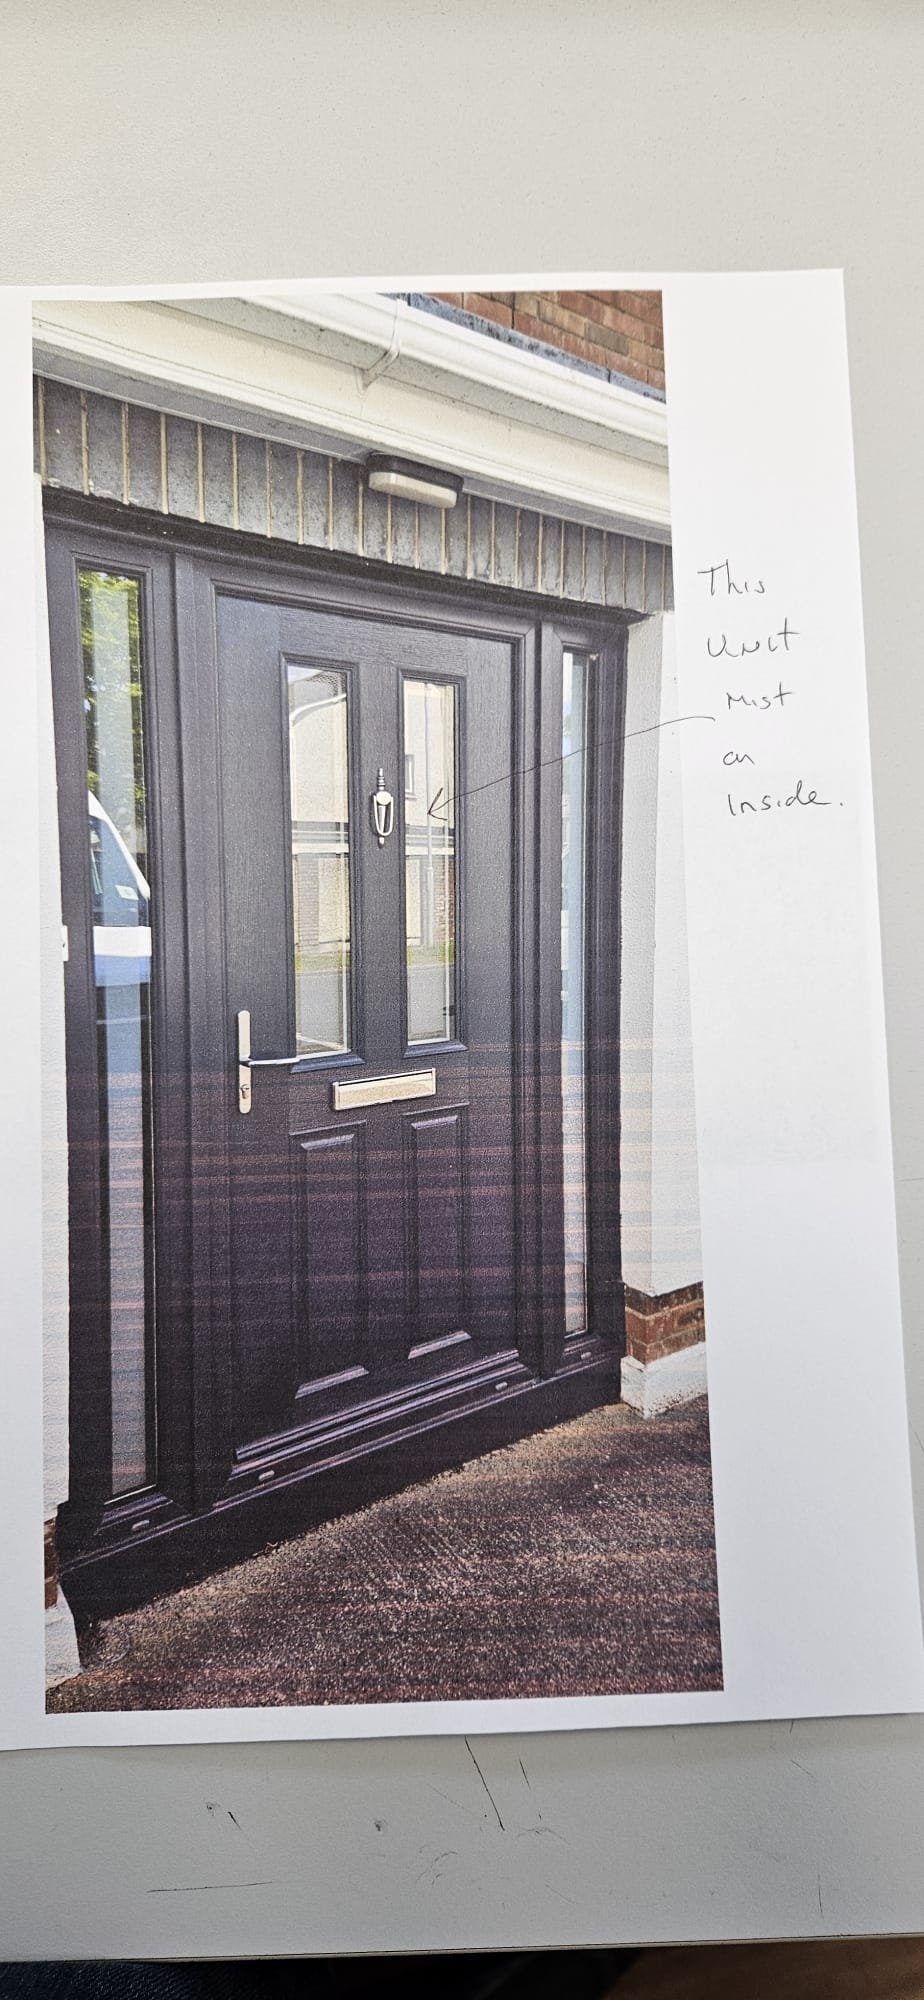 This
Unit
Mist
on
Inside.